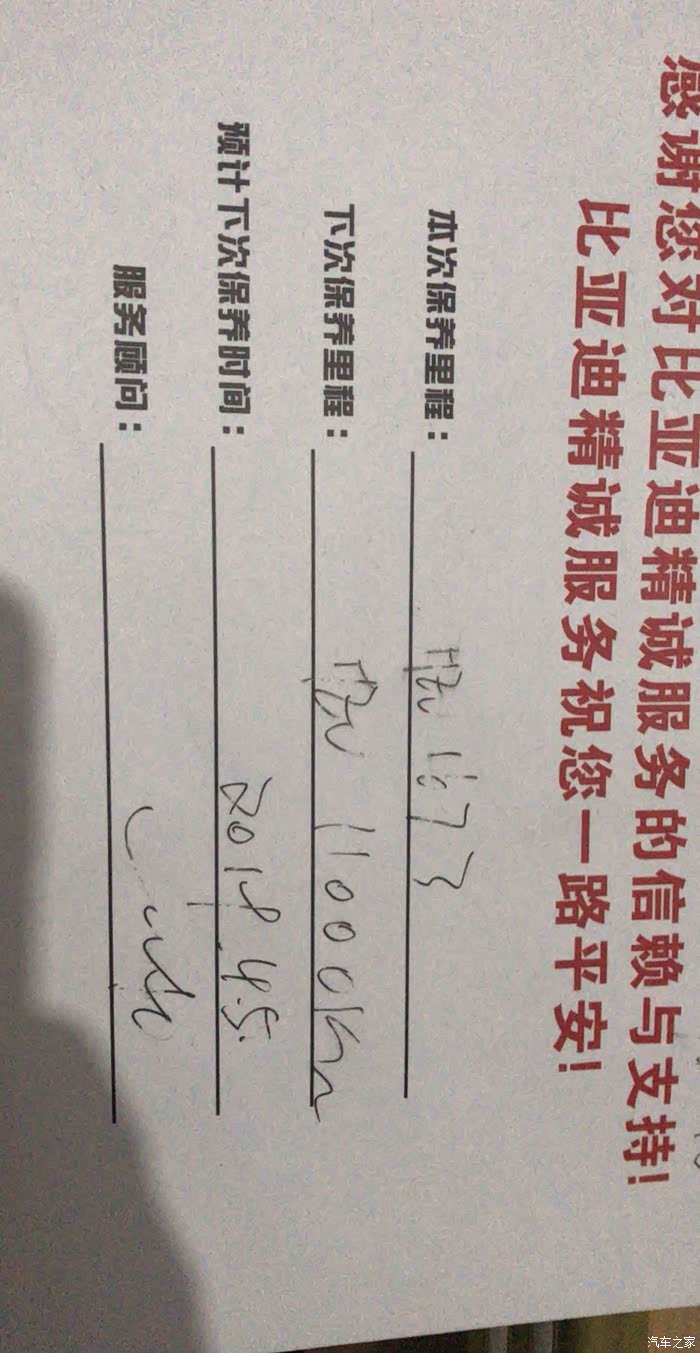 感谢您对比亚迪精诚服务的信赖与支持!
比亚迪精诚服务祝您一路平安!
本次保养里程:
下次保养里程: 11000Km
预计下次保养时间: 2018.4.5.
服务顾问:
汽车之家